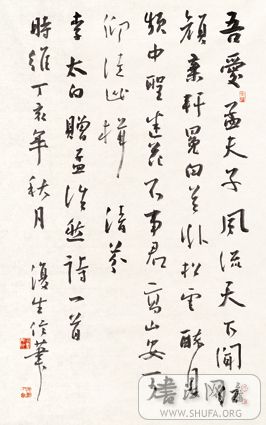 吾愛孟夫子風流天下聞紅
顏棄軒冕白首臥松雲醉月
頻中聖迷花不事君高山安可
仰徒此揖清芬
李太白贈孟浩然詩一首
時維丁亥年秋月
復生信筆
WWW.SHUFA.ORG